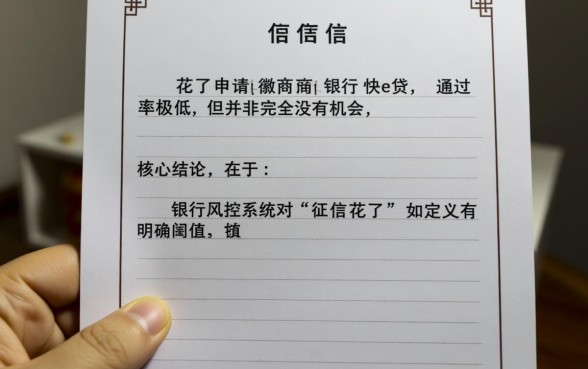 信信信
花了申请 徽商商 银行 快e贷， 通过
率极低，但并非完全没有机会，
核心结论，在于：
银行风控系统对“征信花了”如定义有
明确阈值，